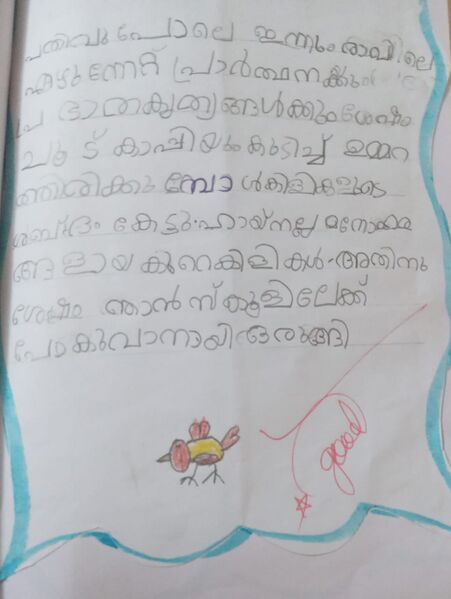 പതിവു പോലെ ഇന്നും രാവിലെ
എഴുന്നേറ്റ് പ്രാർത്ഥനക്കും
പ്രഭാതകൃത്യങ്ങൾക്കുംശേഷം
ചൂട് കാപ്പിയും കുടിച്ച് ഉമ്മറ
ത്തിരിക്കുമ്പോൾകിളികളുടെ
ശബ്ദം കേട്ടു.ഹായ്നല്ല മനോഹര
ങ്ങളായ കുറെകിളികൾ.അതിനു
ശേഷം ഞാൻ സ്കൂളിലേക്ക്
പോകുവാനായി ഒരുങ്ങി
good